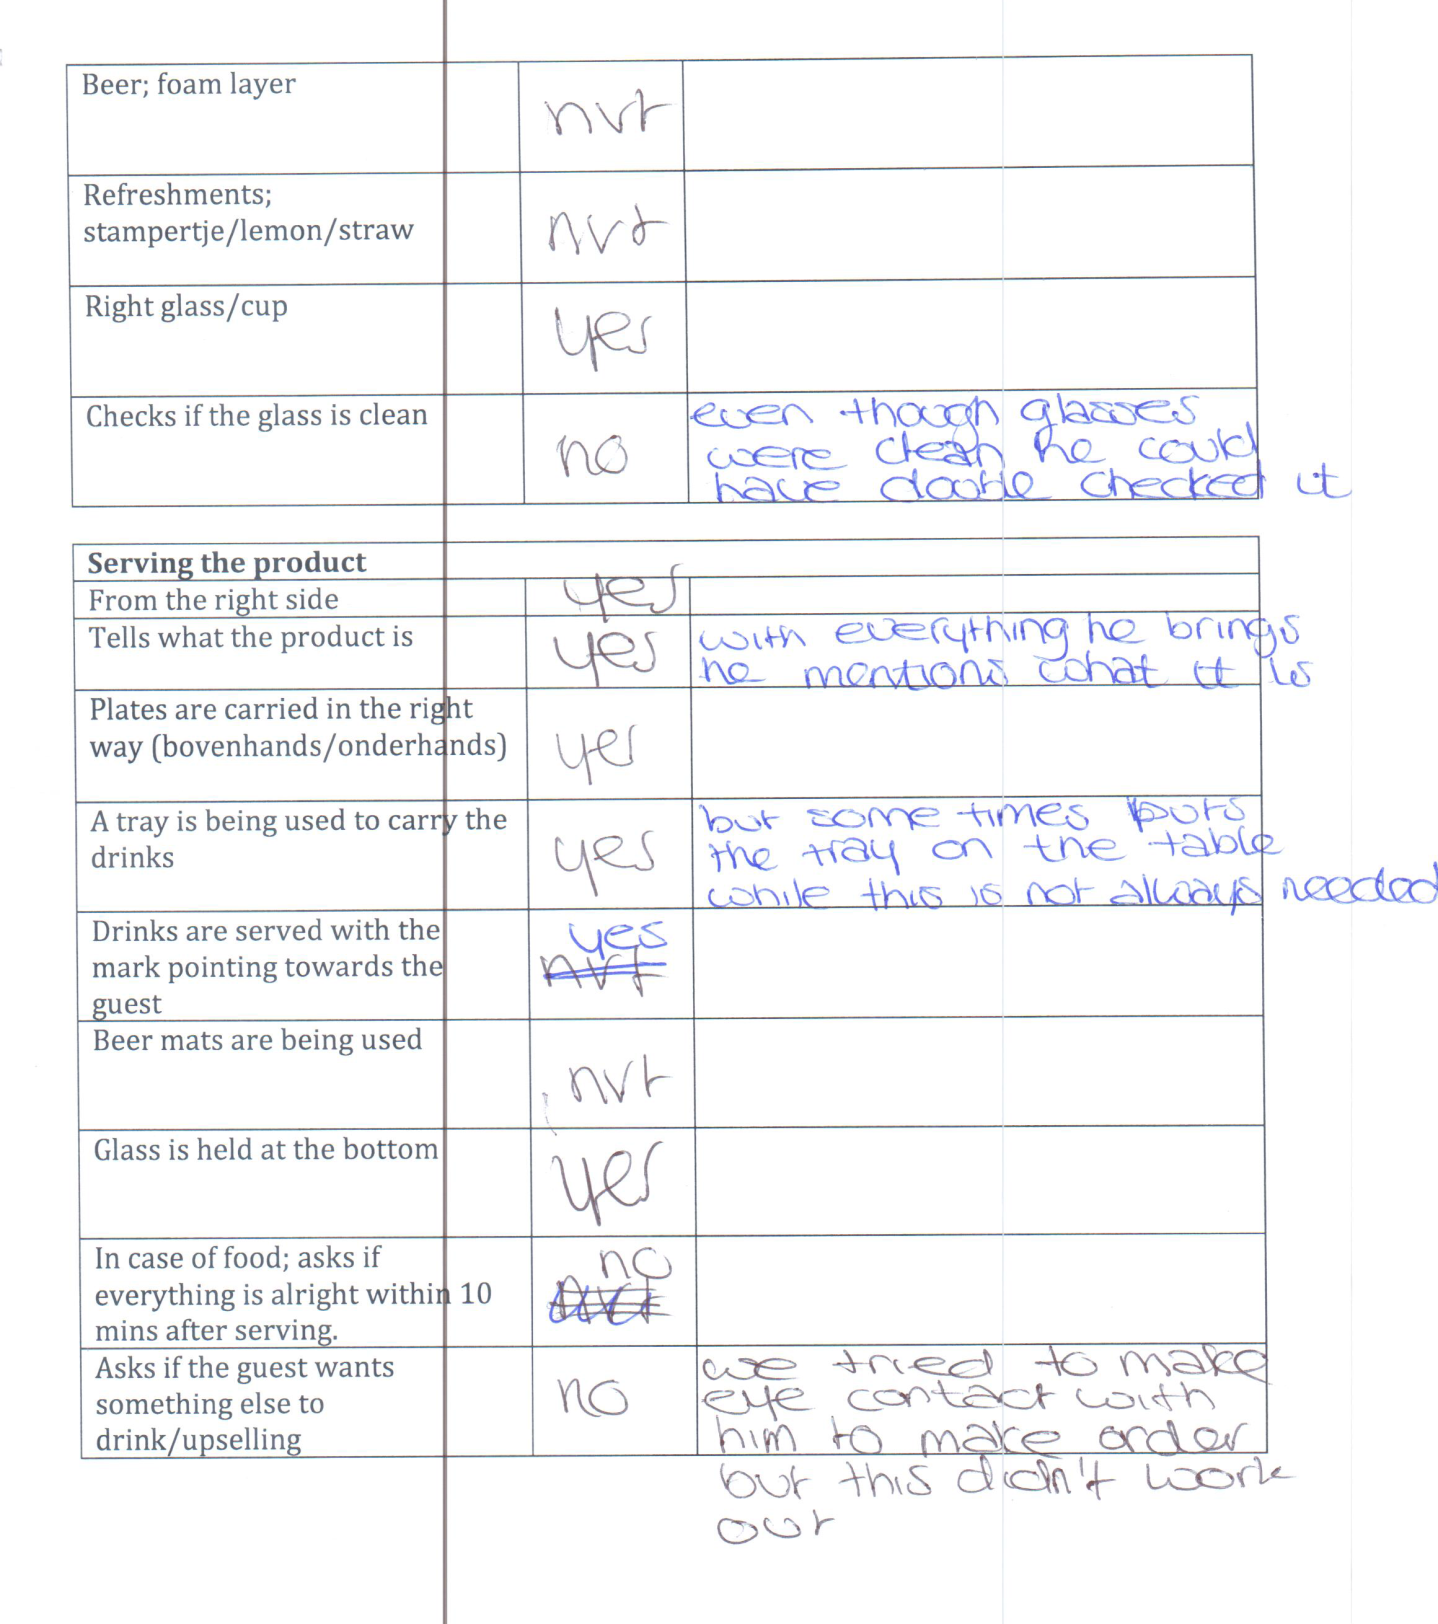 Beer; foam layer
nvt
Refreshments;
stampertje/lemon/straw
nvt
Right glass/cup
yes
Checks if the glass is clean
no
even though glasses
were clean he could
have double checked it
Serving the product
From the right side
yes
Tells what the product is
yes
with everything he brings
he mentions what it is
Plates are carried in the right
way (bovenhands/onderhands)
yes
A tray is being used to carry the
drinks
yes
but some times puts
the tray on the table
while this is not always needed
Drinks are served with the
mark pointing towards the
guest
yes
nvt
Beer mats are being used
nvt
Glass is held at the bottom
yes
In case of food; asks if
everything is alright within 10
mins after serving.
no
Asks if the guest wants
something else to
drink/upselling
no
we tried to make
eye contact with
him to make order
but this didn't work
out